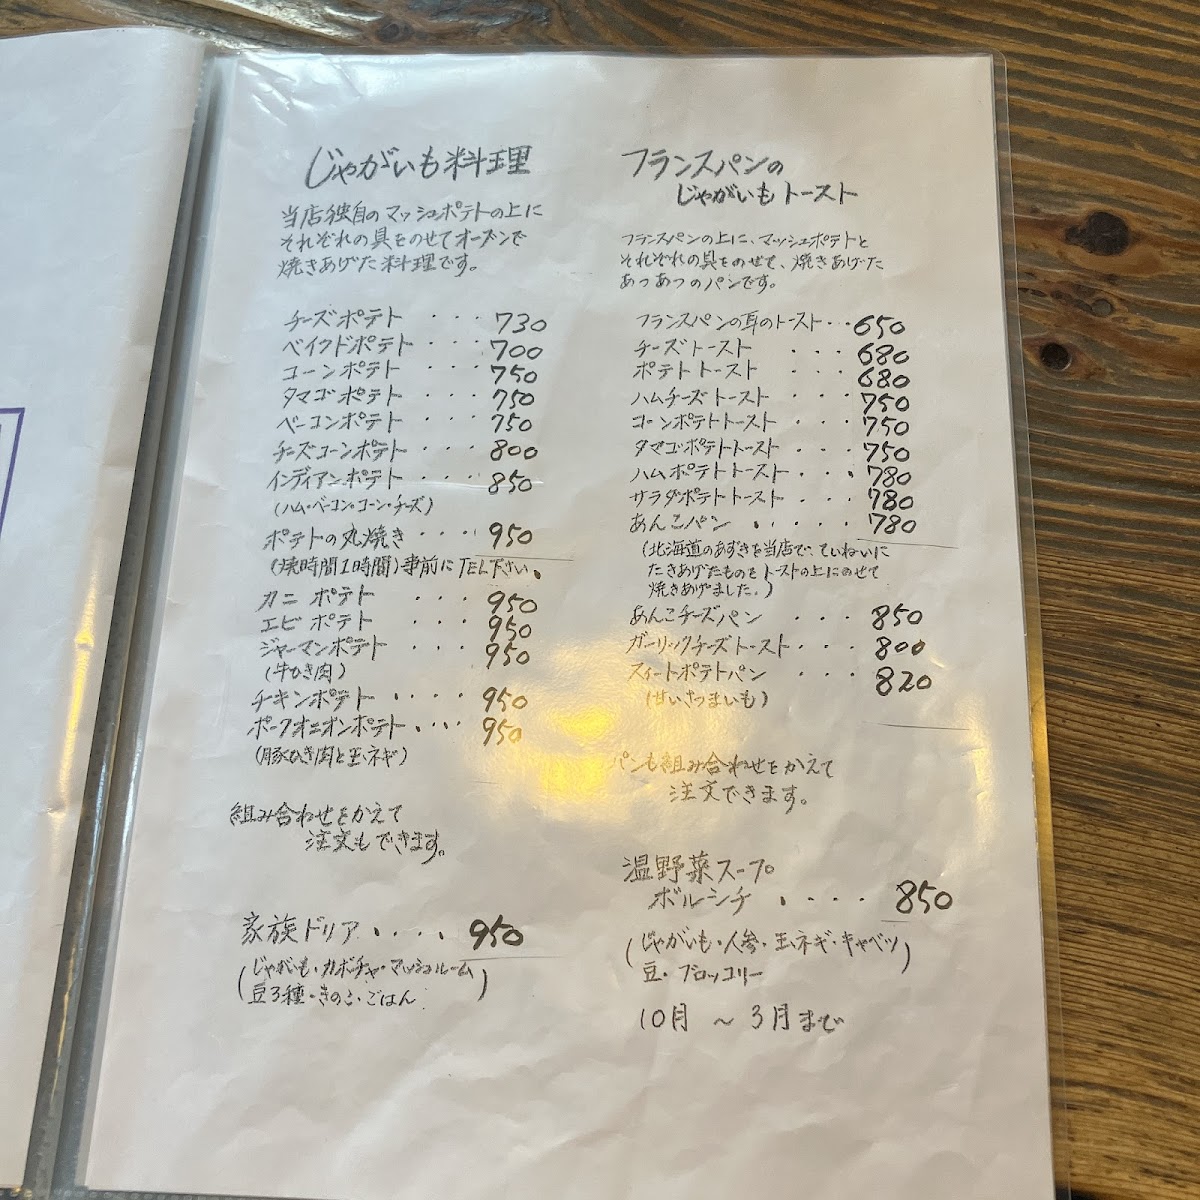 じゃがいも料理
当店独自のマッシュポテトの上に
それぞれの具をのせてオーブンで
焼きあげた料理です。
チーズポテト ・・・730
ベイクドポテト ・・・700
コーンポテト ・・・750
タマゴポテト ・・・750
ベーコンポテト ・・・750
チーズコーンポテト ・・・800
インディアンポテト ・・・850
(ハム・ベーコン・コーン・チーズ)
ポテトの丸焼き ・・・950
(焼時間1時間)事前にTEL下さい。
カニポテト ・・・950
エビポテト ・・・950
ジャーマンポテト ・・・950
(牛ひき肉)
チキンポテト ・・・・950
ポークオニオンポテト ・・・950
(豚ひき肉と玉ネギ)
組み合わせをかえて
注文もできます。
家族ドリア ・・・・950
(じゃがいも・カボチャ・マッシュルーム
豆3種・きのこ・ごはん)
フランスパンの
じゃがいもトースト
フランスパンの上に、マッシュポテトと
それぞれの具をのせて、焼きあげた
あつあつのパンです。
フランスパンの耳のトースト・・650
チーズトースト ・・・680
ポテトトースト ・・・680
ハムチーズトースト ・・・750
コーンポテトトースト ・・・750
タマゴポテトトースト ・・・750
ハムポテトトースト ・・・780
サラダポテトトースト ・・・780
あんこパン ・・・・780
(北海道のあずきを当店で、ていねいに
たきあげたものをトーストの上にのせて
焼きあげました。)
あんこチーズパン ・・・850
ガーリックチーズトースト・・・800
スイートポテトパン ・・・820
(甘いさつまいも)
パンも組み合わせをかえて
注文できます。
温野菜スープ
ボルシチ ・・・・850
(じゃがいも・人参・玉ネギ・キャベツ
豆・ブロッコリー)
10月 ～ 3月まで